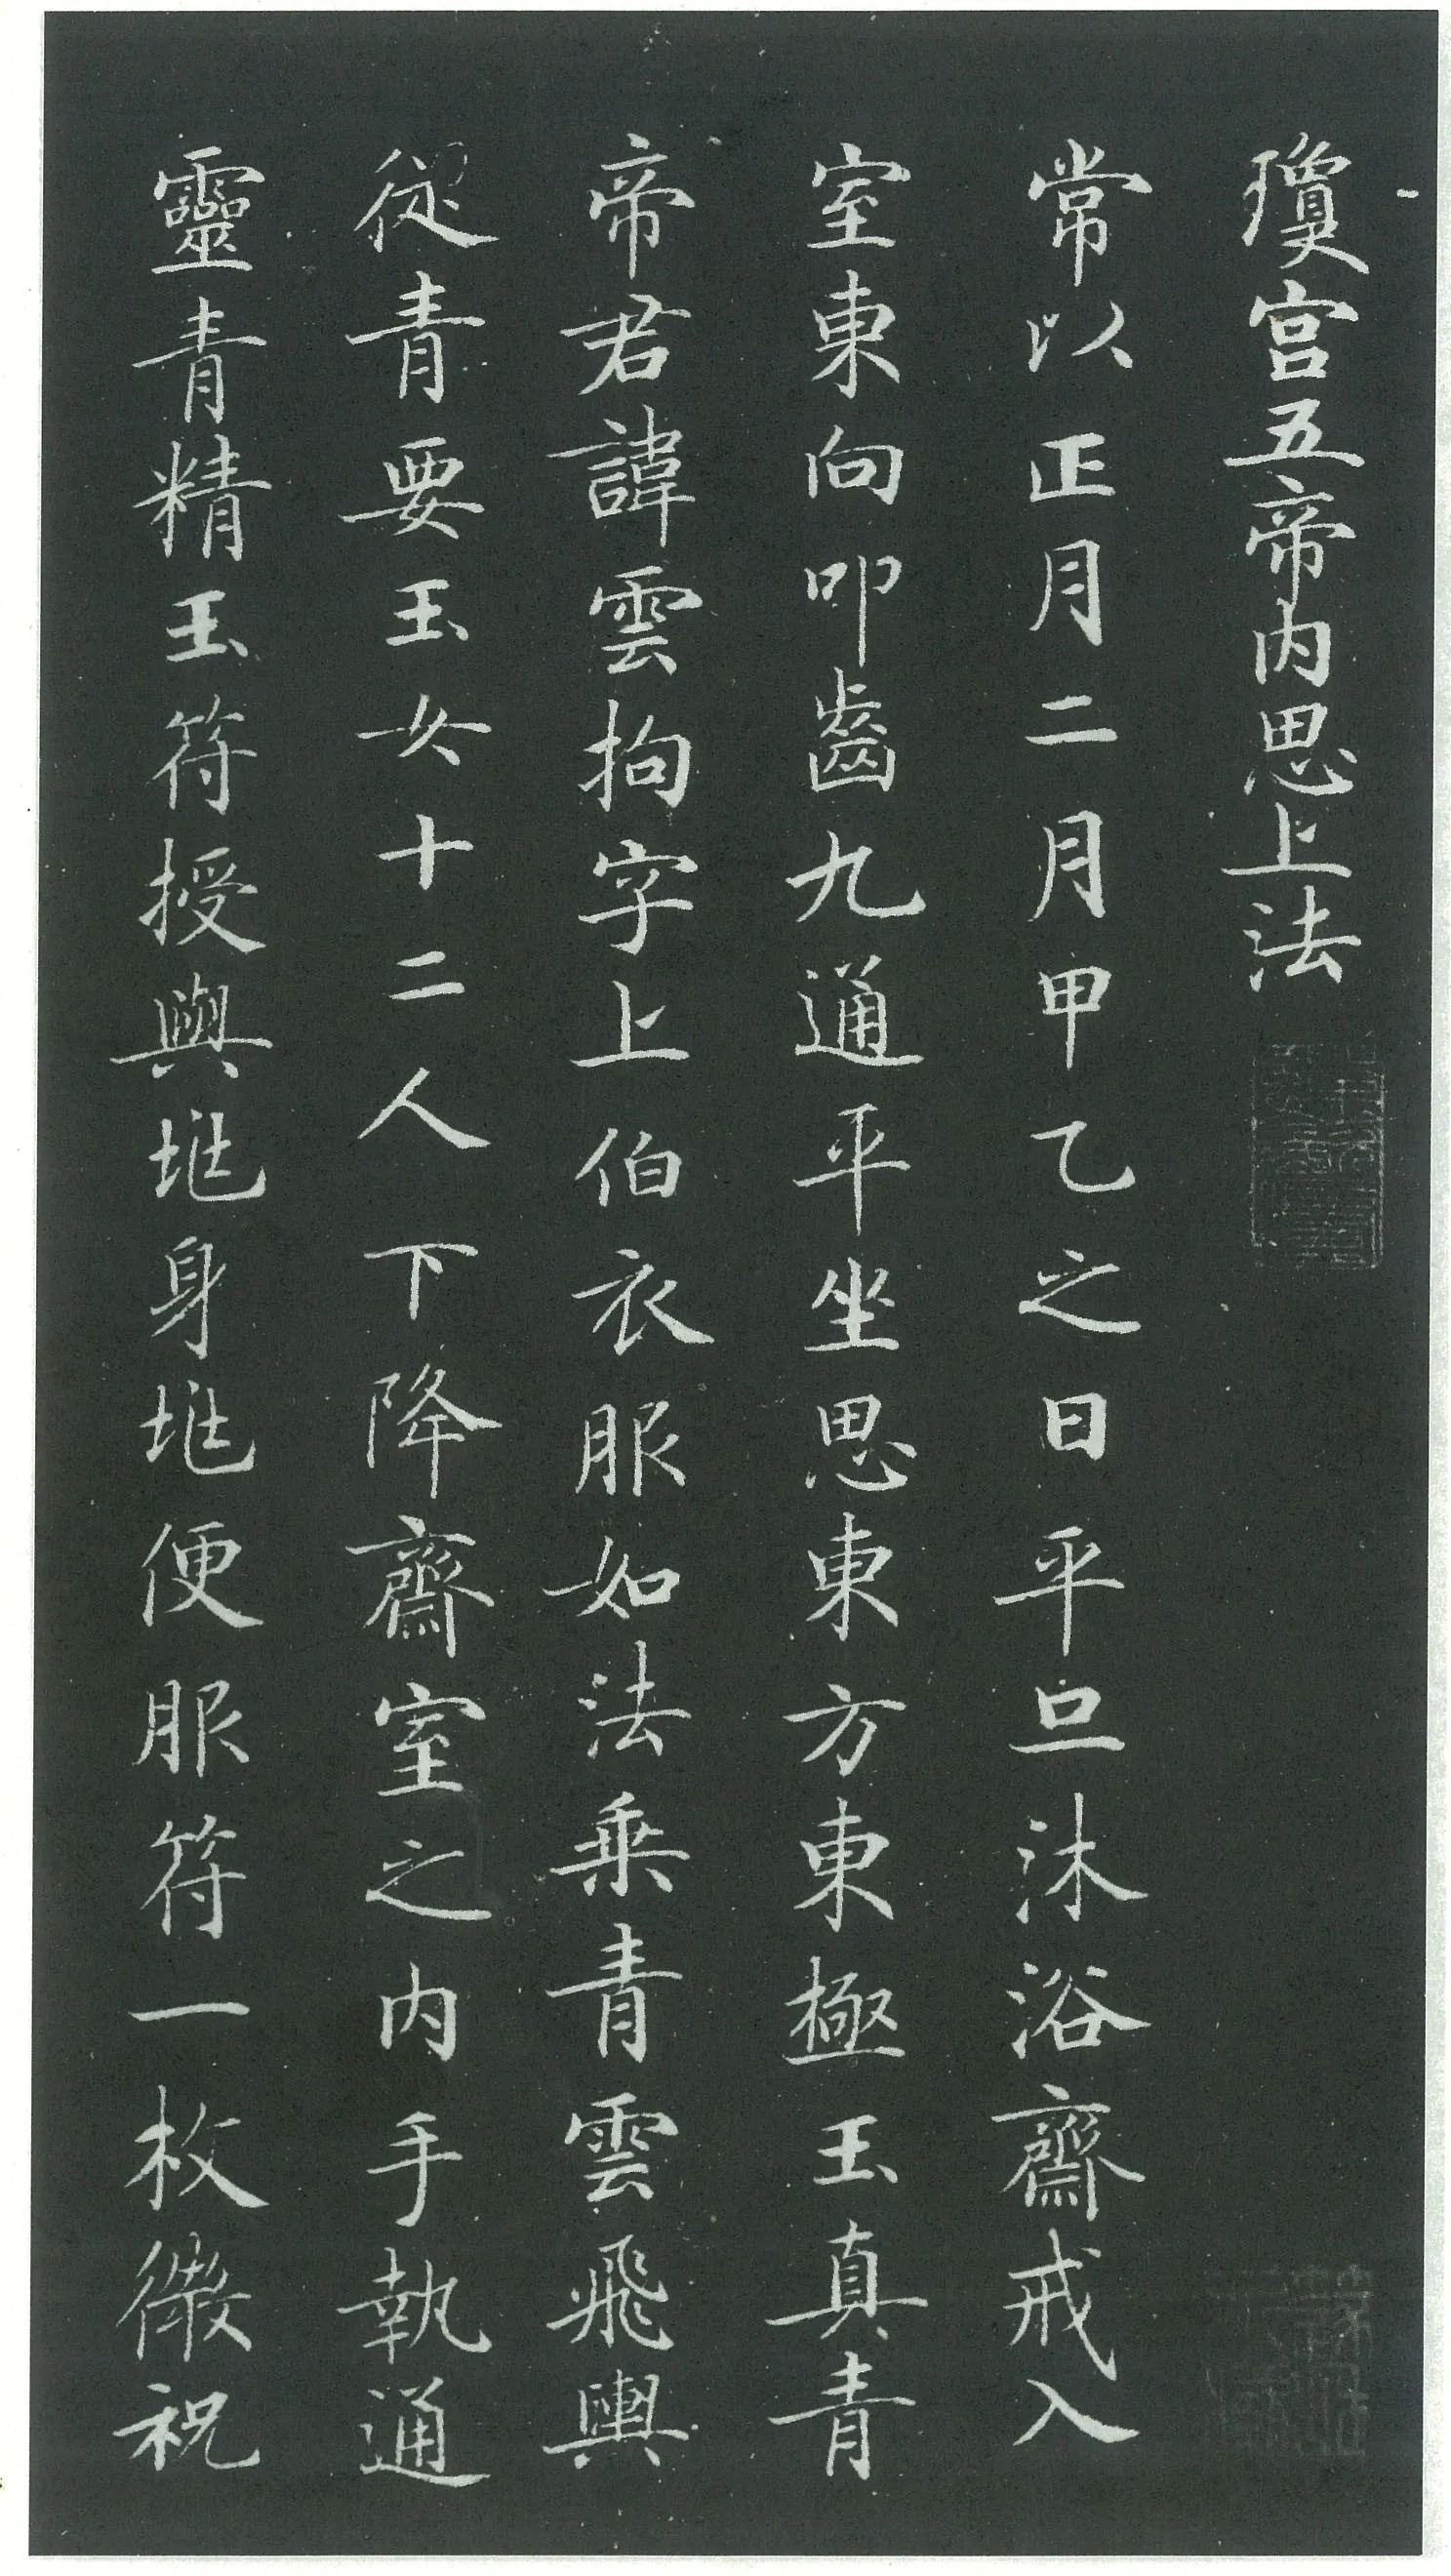 瓊宫五帝内思上法
常以正月二月甲乙之日平旦沐浴齋戒入
室東向叩齒九通平坐思東方東極玉真青
帝君諱雲拘字上伯衣服如法乘青雲飛輿
從青要玉女十二人下降齋室之内手執通
靈青精玉符授與兆身兆便服符一枚微祝